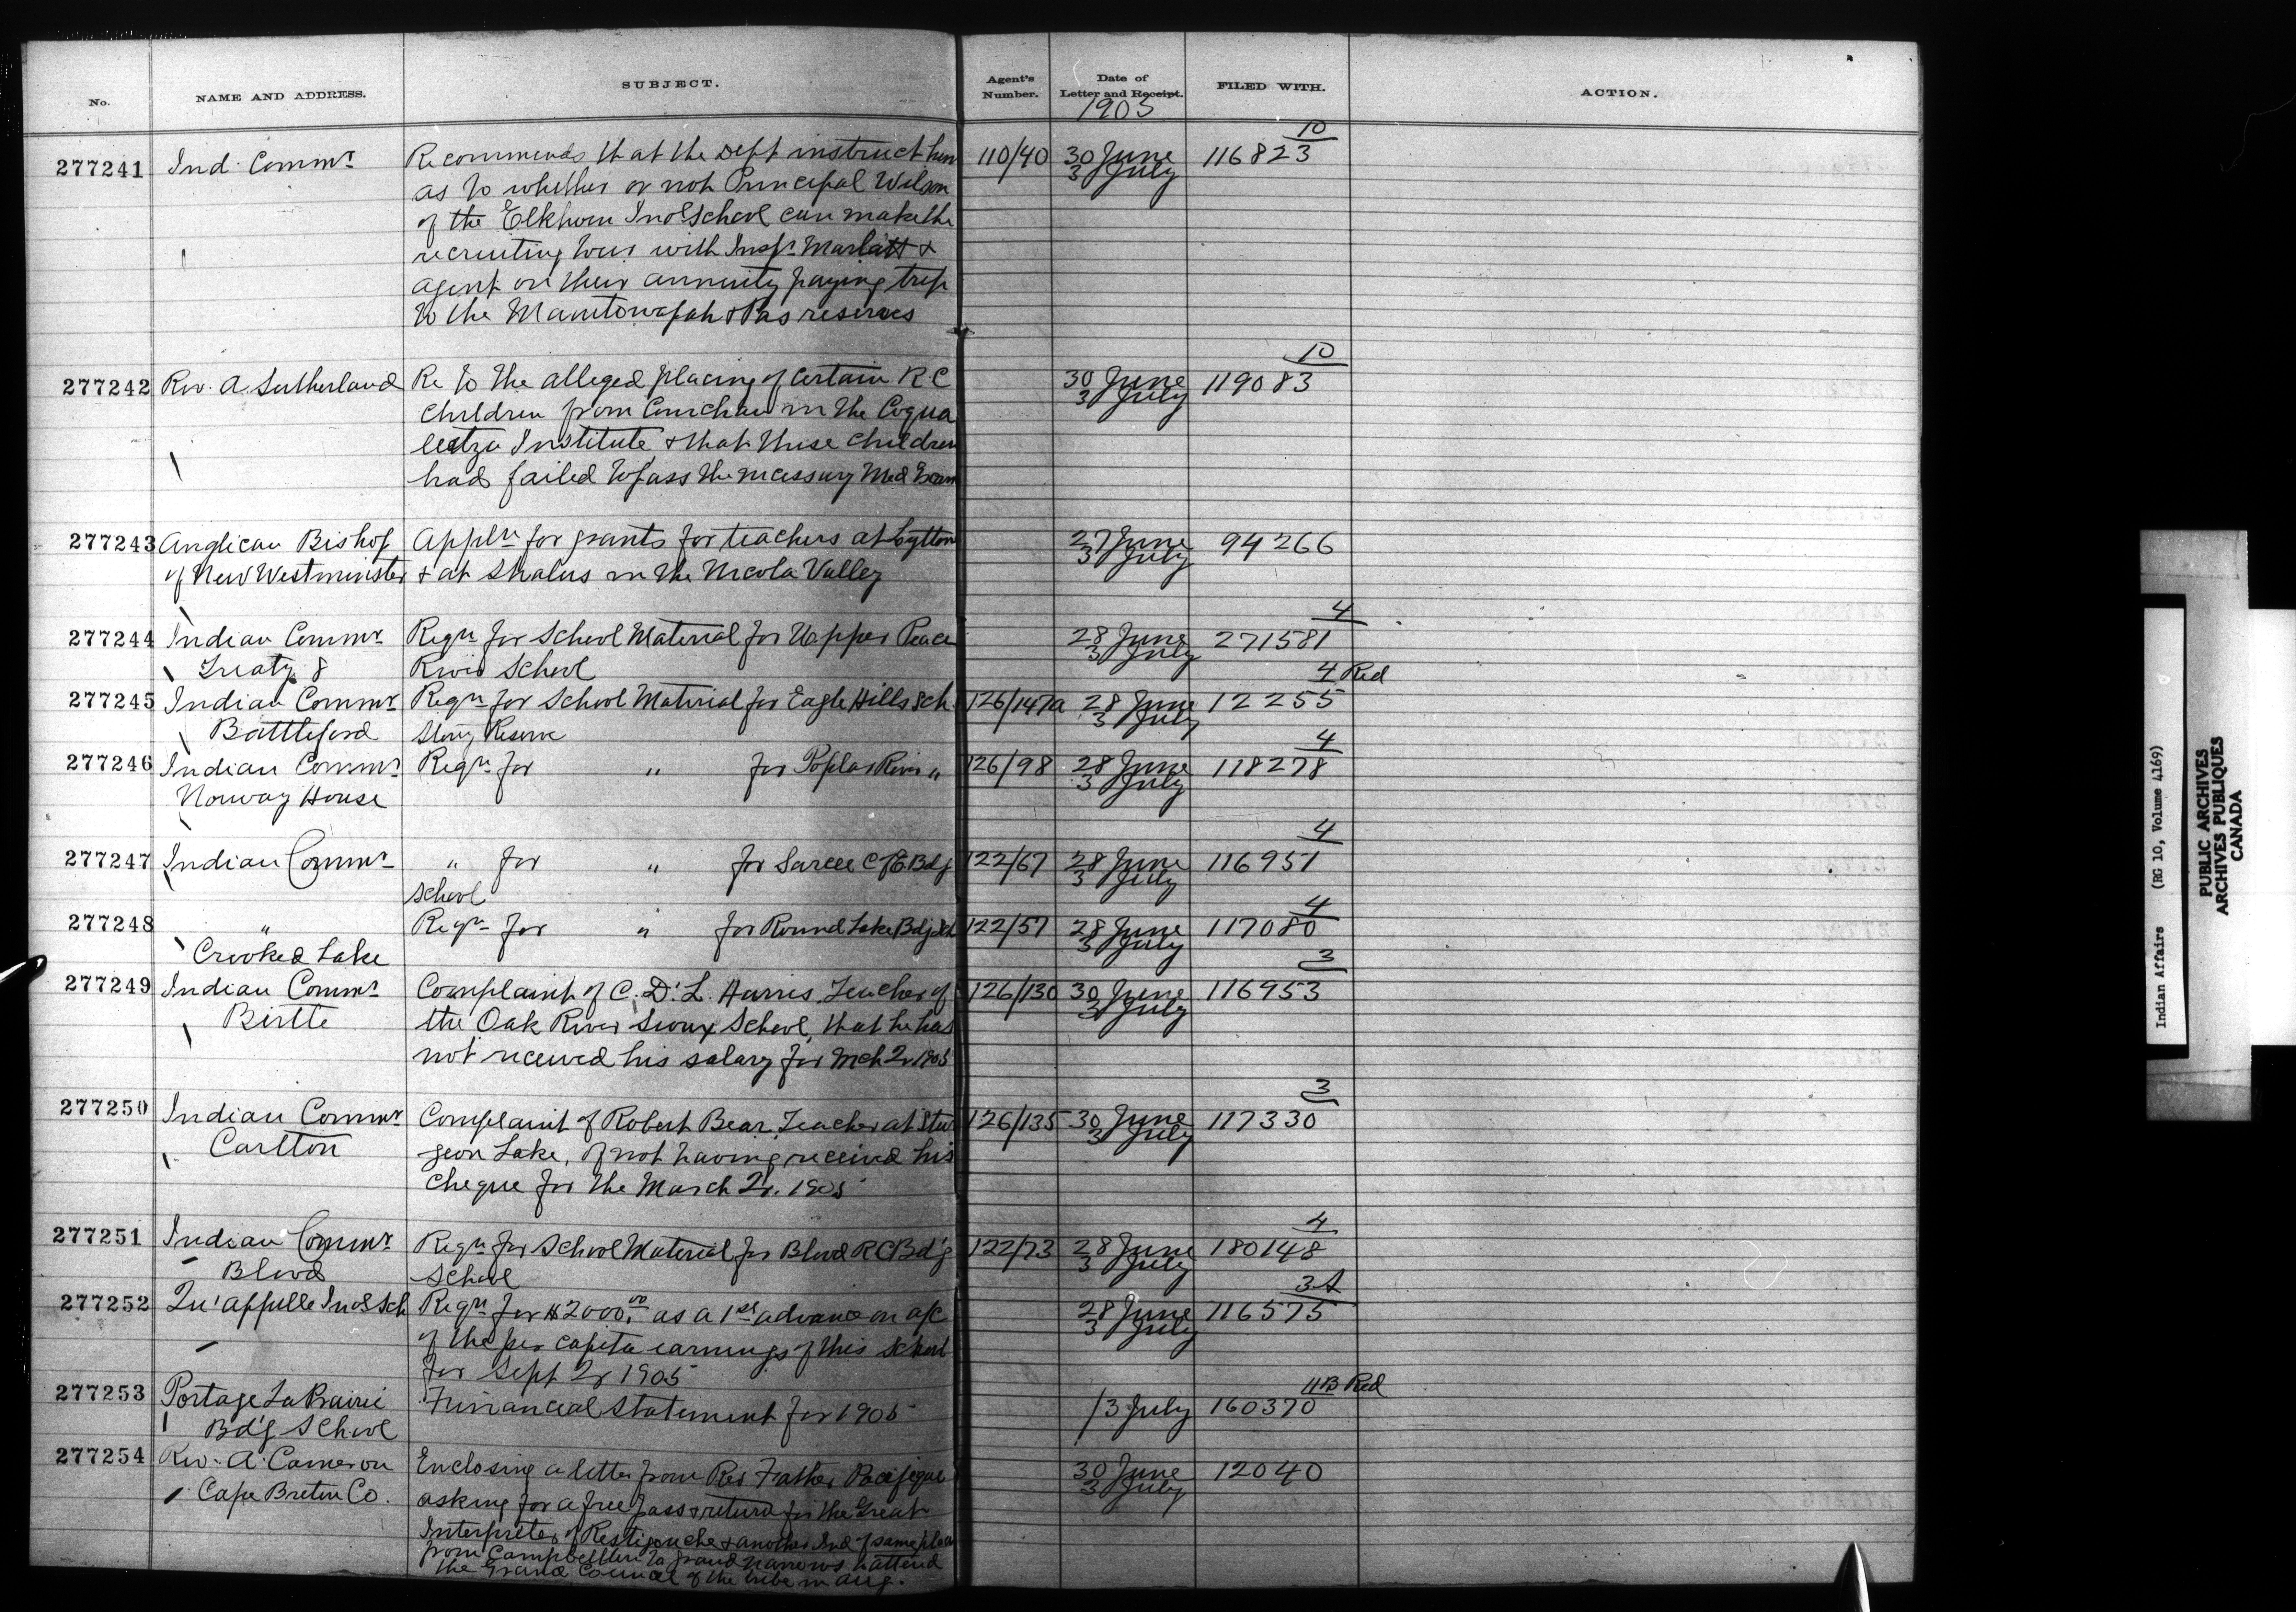 No. NAME AND ADDRESS. SUBJECT. Agent's Number. Date of Letter and Receipt. FILED WITH. ACTION.
1905
10
277241 Ind. Commr Recommends that the Dept instruct him 110/40 30 June 116823
as to whether or not Principal Wilson 3 July
of the Elkhorn Indl School can make the
recruiting tour with Inspr Marlatt &
agent on their annuity paying trip
to the Manitowapah & Pas reserves
10
277242 Rev. A Sutherland Re to the alleged placing of certain R.C 30 June 119083
children from Cowichan in the Coqua 3 July
leetza Institute & that these children
had failed to pass the necessary Med Exam
277243 Anglican Bishop Appln for grants for teachers at Lytton 27 June 94266
of New Westminster & at Shalus in the Nicola Valley 3 July
4
277244 Indian Commr Reqn for School Material for Upper Peace 28 June 271581
Treaty 8 River School 3 July
4 Red
277245 Indian Commr Reqn for School Material for Eagle Hills Sch. 126/147a 28 June 12255
Battleford Stony Reserve 3 July
4
277246 Indian Commr Reqn for " for Poplar River " 126/98 28 June 118278
Norway House 3 July
4
277247 Indian Commr " for " for Sarcee C of E Bdg 122/67 28 June 116951
School 3 July
4
277248 " Reqn for " for Round Lake Bdg Sch 122/57 28 June 117080
Crooked Lake 3 July
3
277249 Indian Commr Complaint of C. D'. L. Harris, Teacher of 126/130 30 June 116953
Birtle the Oak River Sioux School, that he has 3 July
not received his salary for Mch Qr 1905
3
277250 Indian Commr Complaint of Robert Bear, Teacher at Stur 126/135 30 June 117330
Carlton geon Lake, of not having received his 3 July
cheque for the March Qr. 1905
4
277251 Indian Commr Reqn for School Material for Blood RC Bd'g 122/73 28 June 180148
Blood School 3 July
3A
277252 Qu'Appelle Indl Sch Reqn for $2000.00 as a 1st advance on a/c 28 June 116575
of the per capita earnings of this School 3 July
for Sept Qr 1905
11B Red
277253 Portage La Prairie Financial Statement for 1905 /3 July 160370
Bd'g School
277254 Rev. A. Cameron Enclosing a letter from Rev Father Pacifique 30 June 12040
Cape Breton Co. asking for a free pass & return for the Great 3 July
Interpreter of Restigouche & another Ind of same place
from Campbellton to Grand Narrows to attend
the Grand Council of the tribe in Aug.
Indian Affairs (RG 10, Volume 4169)
PUBLIC ARCHIVES
ARCHIVES PUBLIQUES
CANADA